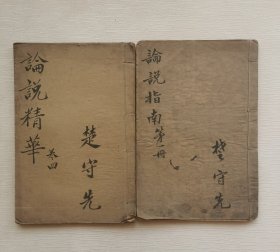 論說精華
卷四
楚守先
論說指南第一册
楚守先